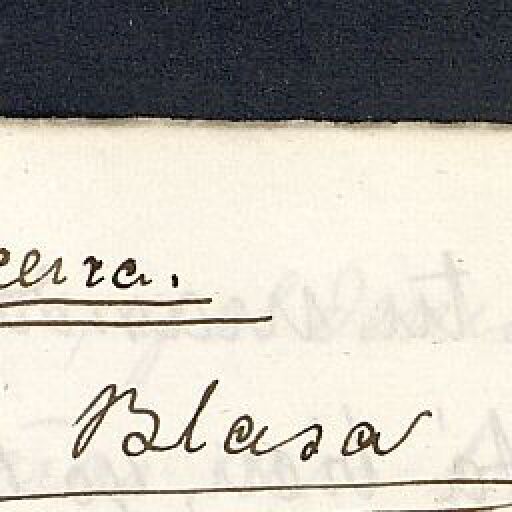 cerra.
Blasa